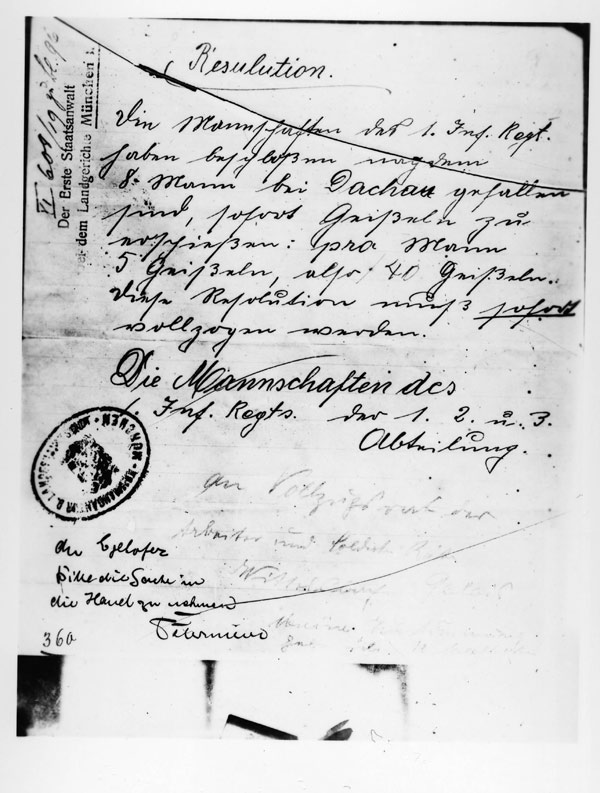 Resulution.
Die Mannschaften des 1. Inf. Regt.
haben beschloßen nachdem
8. Mann bei Dachau gefallen
sind, sofort Geißeln zu
erschießen: pro Mann
5 Geißeln, also 40 Geißeln.
Diese Resolution muß sofort
vollzogen werden.
Die Mannschaften des
1. Inf. Regts. der 1. 2. u. 3.
Abteilung.
An Vollzugsrat der
Arbeiter und Soldaten
Wittelsbacher Palais
An Egelhofer
bitte die Sache in
die Hand zu nehmen
360
VI 608/19
Der Erste Staatsanwalt
bei dem Landgerichte München I.
MÜNCHEN